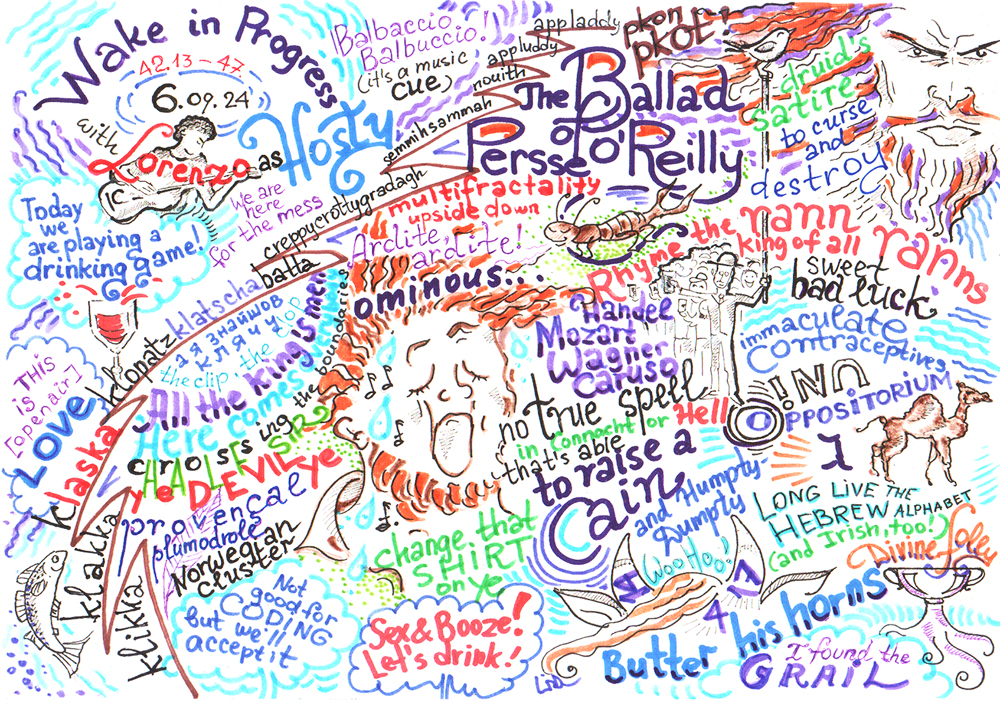 Wake in Progress
42.13-47.
6.09.24
with
Lorenzo as
Hosty
Today
we
are playing a
drinking game!
we are
here
for the mess
Balbaccio!
Balbuccio!
(it's a music
cue)
klikka
klakka
klaska
klopatz
klatscha
batta
creppycrottygraddagh
semmihsammah
nouith
appluddy
appladdy
pkon
pkot!
The Ballad
of
Persse O'Reilly
druid's
satire
to curse
and
destroy
multifractality
upside down
Arclite,
and life!
ominous...
Rhyme the rann
king of all ranns
sweet
bad luck
immaculate
contraceptives
Handel
Mozart
Wagner
Caruso
no true spell
in Connacht or Hell
that's able
to raise a
Cain
[THIS
IS
open air]
Love
а я знайшов
клячу
the clip, the clop
All the king's men
Here comes everybody
crossing the boundaries
HALF SIR
ye DEVIL ye
provençal
plumodrole
Norwegian
cluster
Not
good for
CODING
but we'll
accept it
Sex & Booze!
Let's drink!
change that
SHIRT
on ye
and Humpty-
Dumpty
WooHoo!
4
OINN
OPPOSITORIUM
LONG LIVE THE
HEBREW ALPHABET
(and Irish, too!)
Divine folly
Butter his horns
I found the
GRAIL
Lisa